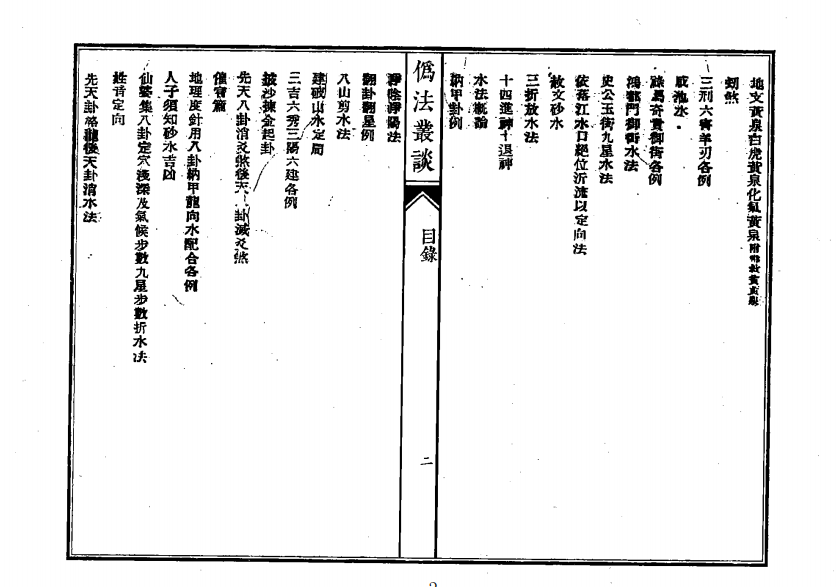 地支黃泉白虎黃泉化氣黃泉附帶救黃泉點
劫煞
三刑六害羊刃各例
咸池水
祿馬奇貴御街各例
鴻都門御街水法
史公玉街九星水法
依蔣江水口絕位泝流以定向法
赦文砂水
三折放水法
十四進神十退神
水法概論
納甲卦例
僞法叢談
目錄
二
淨陰淨陽法
翻卦翻星例
八山剪水法
建破山水定局
三吉六秀三陽六建各例
披沙揀金起卦
先天八卦消爻煞後天八卦滅爻煞
催官篇
地理度針用八卦納甲龍向水配合各例
人子須知砂水吉凶
仙婆集八卦定穴淺深及氣候步數九星步數折水法
姓音定向
先天卦格龍後天卦消水法
2